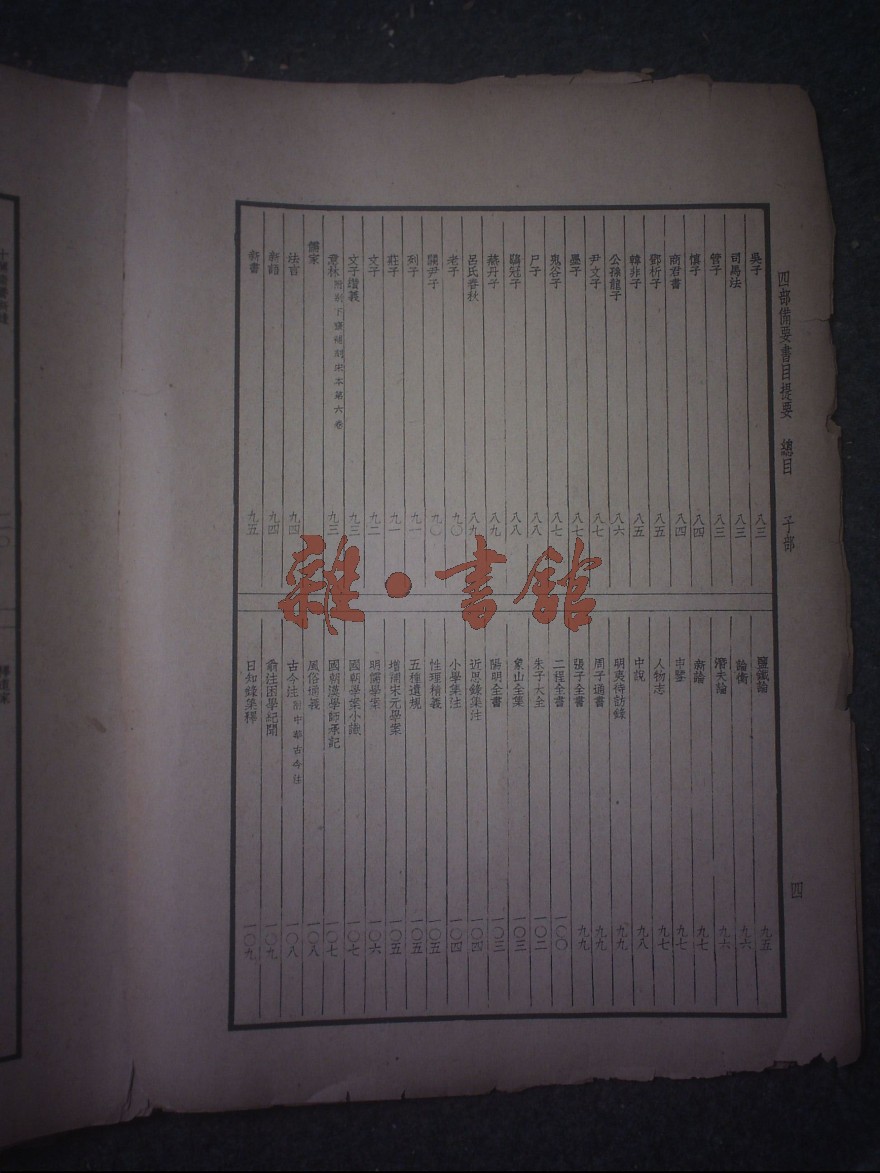 四部備要書目提要 總目 子部 四
吳子 八三
司馬法 八三
管子 八三
慎子 八四
商君書 八四
鄧析子 八五
韓非子 八五
公孫龍子 八六
尹文子 八七
墨子 八七
鬼谷子 八七
尸子 八八
鶡冠子 八八
燕丹子 八九
呂氏春秋 八九
老子 九〇
關尹子 九〇
列子 九一
莊子 九一
文子 九二
文子纘義 九三
意林附別下齋補刻宋本第六卷 九三
儒家
法言 九四
新語 九四
新書 九五
鹽鐵論 九五
論衡 九六
潛夫論 九六
新論 九七
申鑒 九七
人物志 九七
中說 九八
明夷待訪錄 九九
周子通書 九九
張子全書 九九
二程全書 一〇〇
朱子大全 一〇二
象山全集 一〇三
陽明全書 一〇三
近思錄集注 一〇四
小學集注 一〇四
性理精義 一〇五
五種遺規 一〇五
增補宋元學案 一〇五
明儒學案 一〇六
國朝學案小識 一〇七
國朝漢學師承記 一〇七
風俗通義 一〇八
古今注附中華古今注 一〇八
翁注困學紀聞 一〇九
日知錄集釋 一〇九
雜·書館